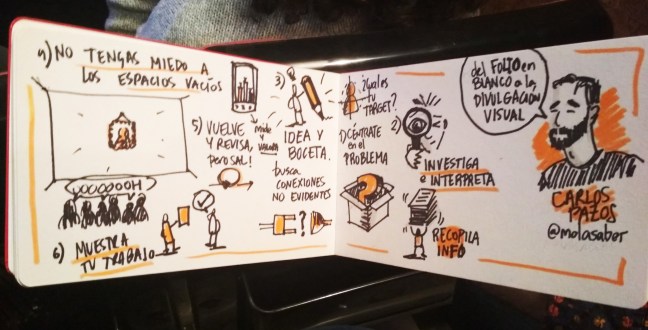 4) NO TENGAS MIEDO A
LOS ESPACIOS VACÍOS
UOOOOOOH
6) MUESTRA
TU TRABAJO
5) VUELVE
Y REVISA,
pero SAL!
mide y
VALORA
3)
IDEA Y
BOCETA.
busca
CONEXIONES
NO EVIDENTES
?
¿Cuál es
tu
TARGET?
1) CÉNTRATE
en el
PROBLEMA
?
2)
INVESTIGA
e INTERPRETA
RECOPILA
INFO
del FOLIO en
BLANCO a la
DIVULGACIÓN
VISUAL
CARLOS
PAZOS
@molasaber